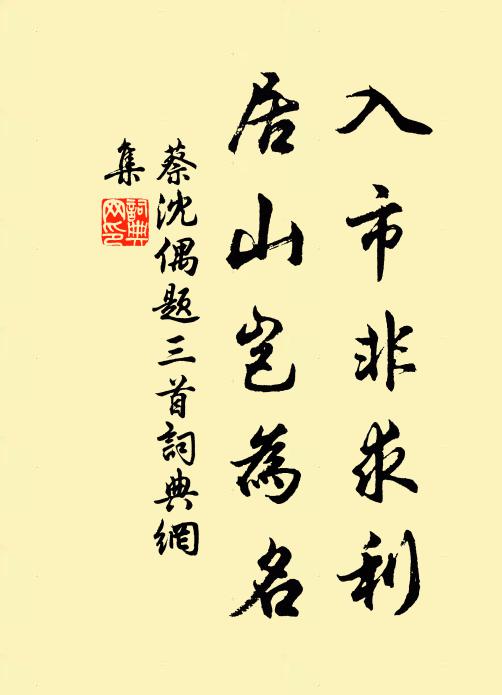 入市非求利
居山岂為名
蔡沈偶题三首詞典網
集
詞典
网印